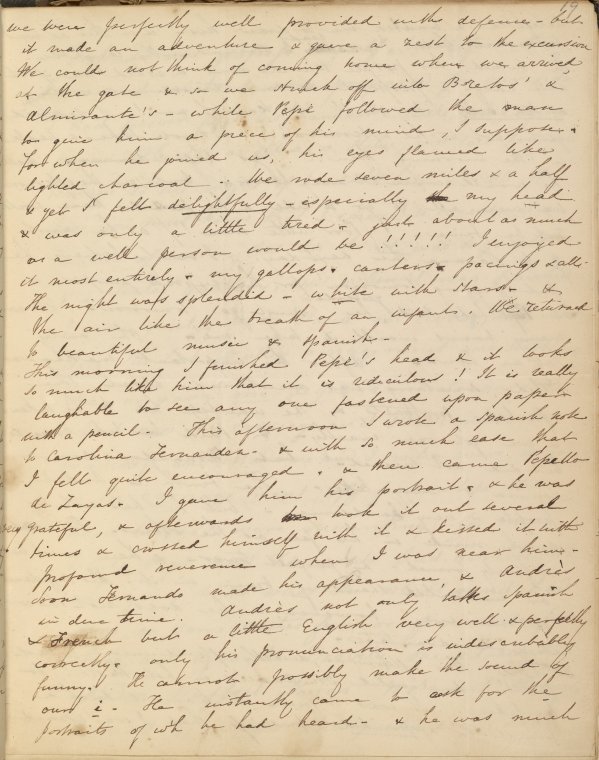 69
we were perfectly well provided with defence - but
it made an adventure & gave a zest to the excursion
We could not think of coming home when we arrived
at the gate & so we struck off into Boretos' &
Almirante's - while Pepè followed the man
to give him a piece of his mind, I suppose.
for when he joined us, his eyes flamed like
lighted charcoal .. We rode seven miles & a half
& yet I felt delightfully - especially my head
& was only a little tired - just about as much
as a well person would be !!!!! I enjoyed
it most entirely - my gallops - canters - pacings & all -
The night was splendid - white with stars - &
the air like the breath of an infant. We returned
to beautiful music & Spanish -
This morning I finished Pepè's head & it looks
so much like him that it is ridiculous! It is really
laughable to see any one fastened upon paper
with a pencil - This afternoon I wrote a Spanish note
to Carolina Fernandez - & with so much ease that
I felt quite encouraged. & then came Pepillo
de Zayas - I gave him his portrait - & he was
very grateful, & afterwards took it out several
times & crossed himself with it & kissed it with
profound reverence when I was near him -
Soon Fernando made his appearance, & Andrès
in due time. Andrès not only talks Spanish
& French but a little English very well & perfectly
correctly - only his pronunciation is indescribably
funny. He cannot possibly make the sound of
our i - He instantly came to ask for the
portraits of wh he had heard - & he was much